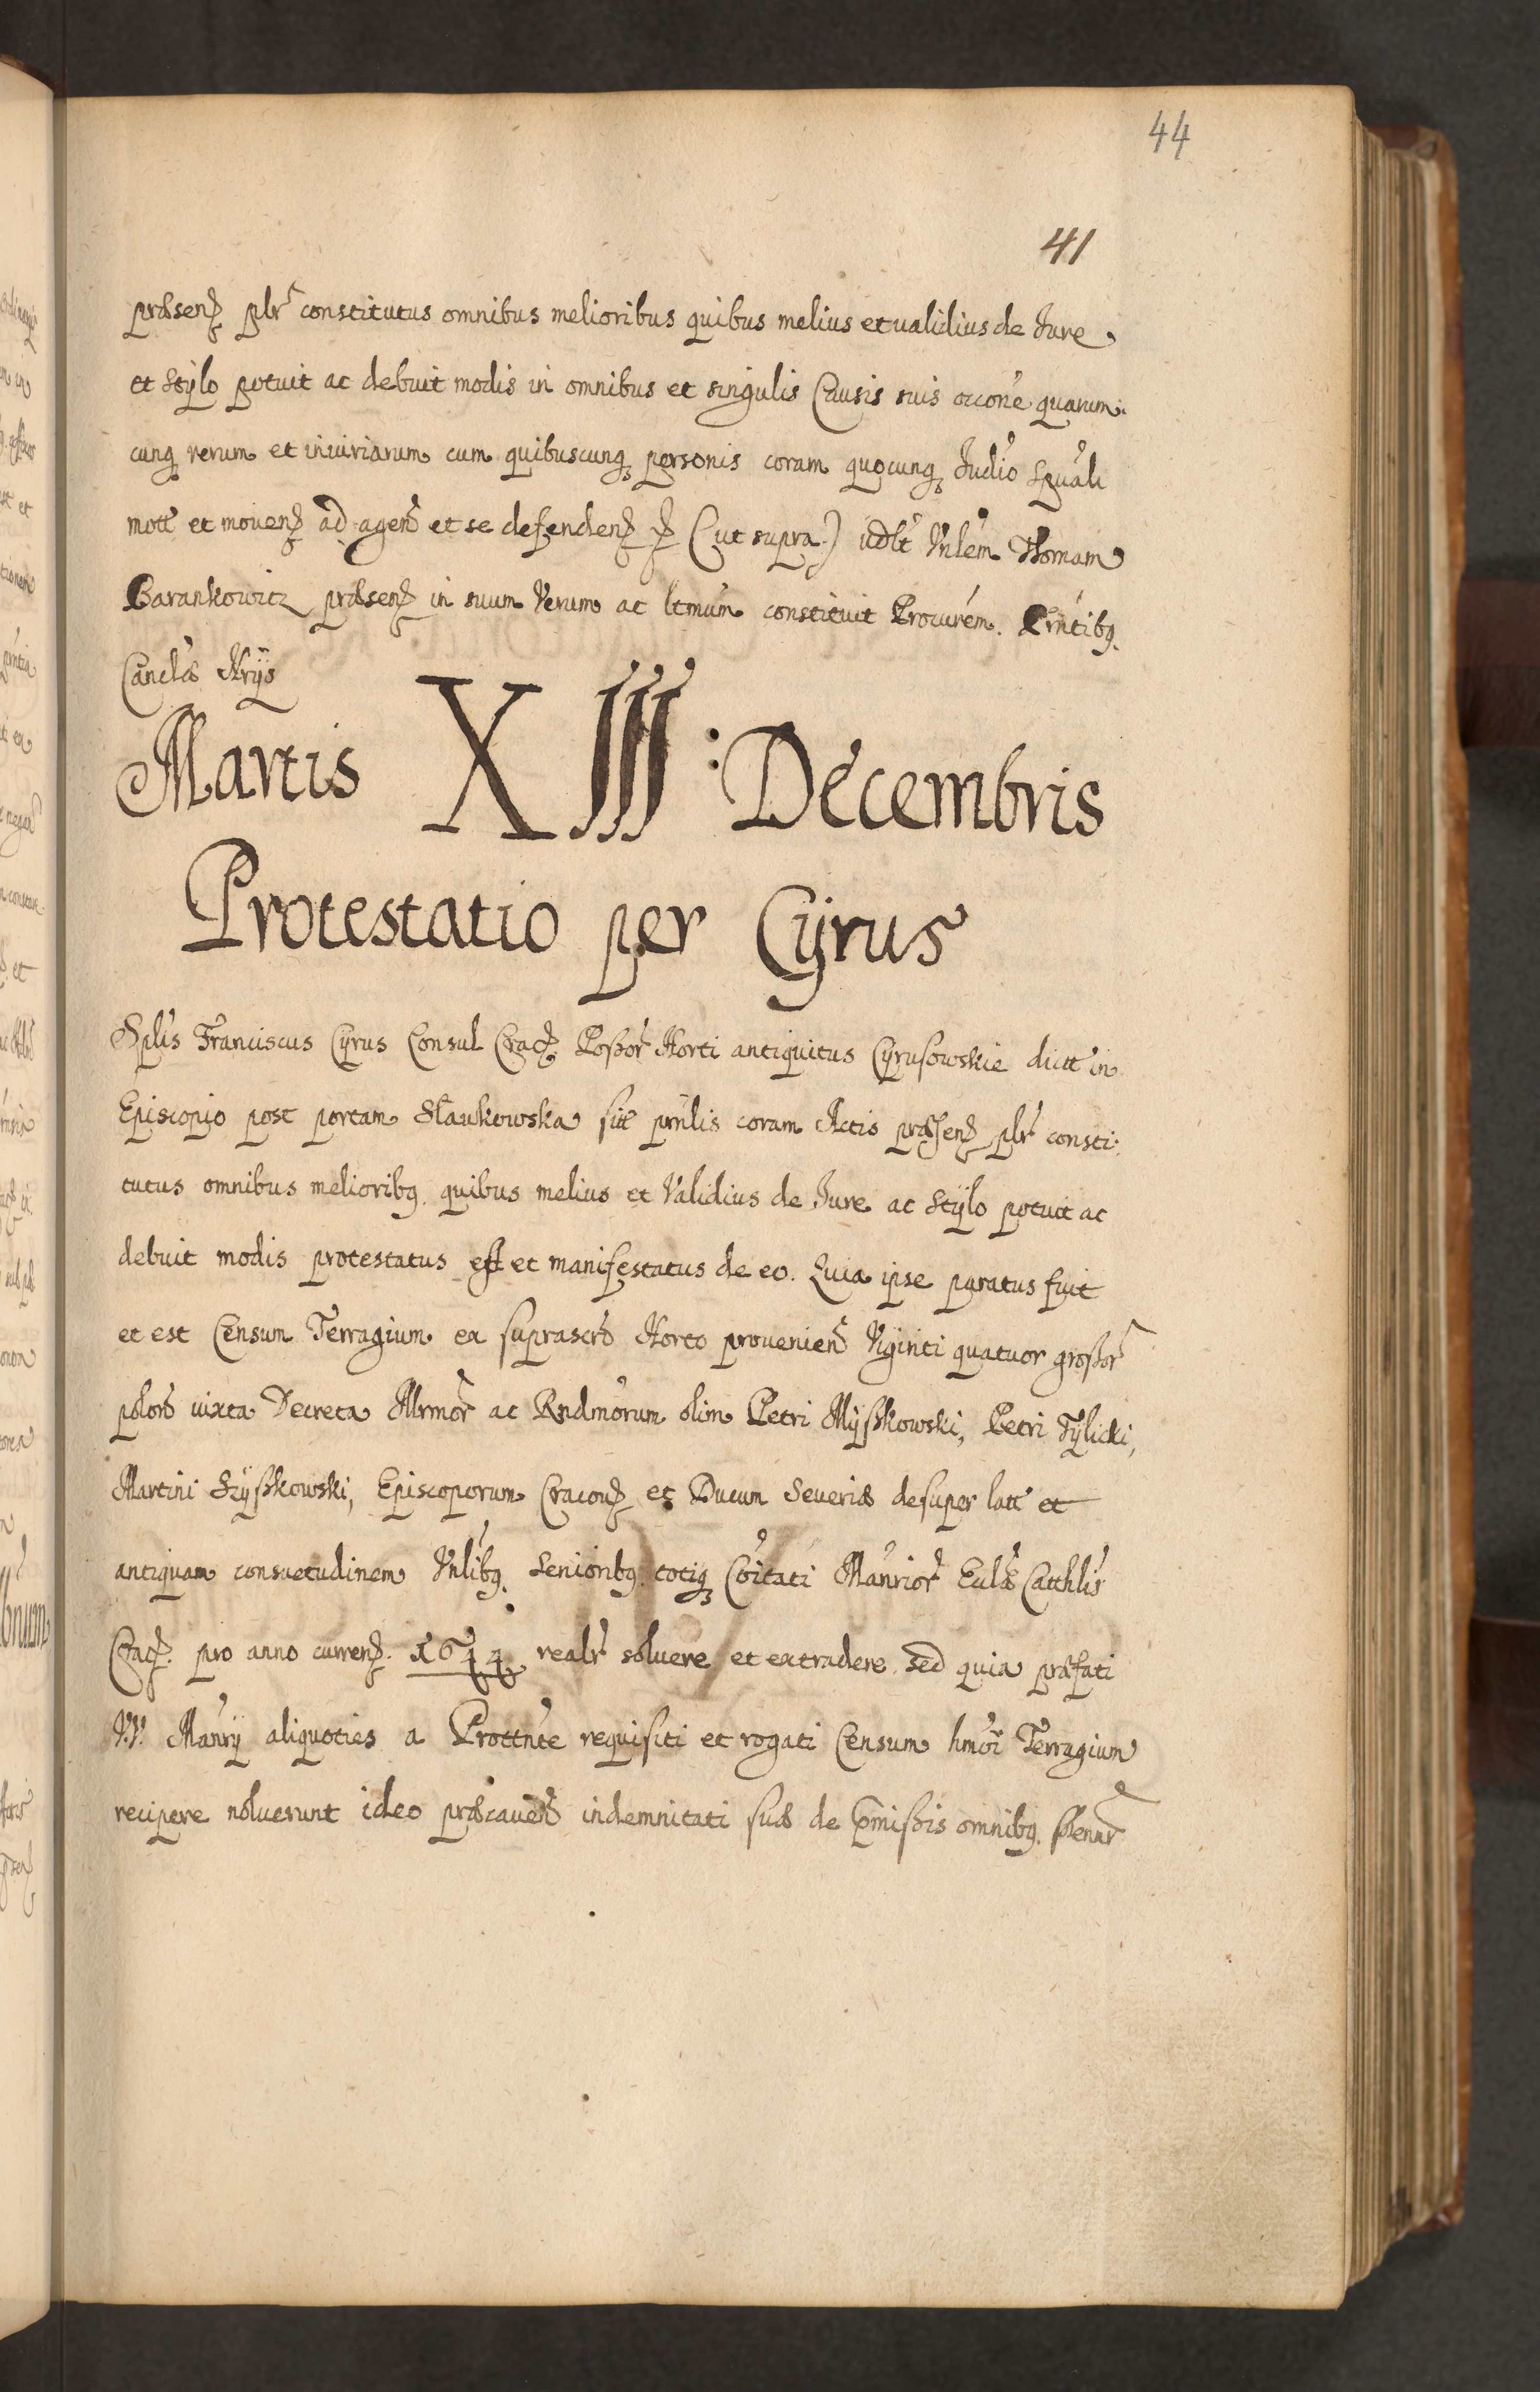 44
41
præsen̄ plr̄ constitutus omnibus melioribus quibus melius et validius de Iure
et Stÿlo potuit ac debuit modis in omnibus et singulis Causis suis occōne quarum:
cunq̨ rerum et iniuriarum cum quibuscunq̨ personis coram quocunq̨ Iudiō Spuāli
mott̄ et mouen̄ ad agen̄ et se defenden̄ (ut supra) Vnlēm Thomam
Barankowicz præsen̄ in suum Verum ac ltmūm constituit Procurēm. Pnn̄tibꝫ
Canclæ Nrÿs
Martis XIII: Decembris
Protestatio per Cÿrus
Splīs Franciscus Cÿrus Consul Crac̄ Poßor̄ Horti antiquitus Cÿrusowskie dictt̄ in
Episcopio post portam Slawkowska sitt̄ prn̄lis coram Actis præsen̄ plr̄ consti:
tutus omnibus melioribꝫ quibus melius et Validius de Iure ac Stÿlo potuit ac
debuit modis protestatus est et manifestatus de eo. Quia ipse paratus fuit
et est Censum Terragium ex suprascr̄o Horto prouenien̄ Viginti quatuor großor̄
iuxta Decreta Illrmōr̄ ac Rndmōrum olim Petri Mÿßkowski, Petri Tÿlicki,
Martini Szÿßkowski, Episcoporum Cracou̅ et Ducum Seueriæ desuper latt̄ et
antiquam consuetudinem Vnlībꝫ Senioribꝫ totiq̨ Cōitati Mān̄rior̄ Eccl̄æ Catthl̄is
Crac̄. pro anno curren̄. 1644 realr̄ soluere et extradere sed quia præfati
VV. Mān̄rÿ aliquoties a Prottn̄te requisiti et rogati Censum hmōi Terragium
recipere noluerunt ideo præcauen̄ indemnitati suæ de p̄mißis omnibꝫ